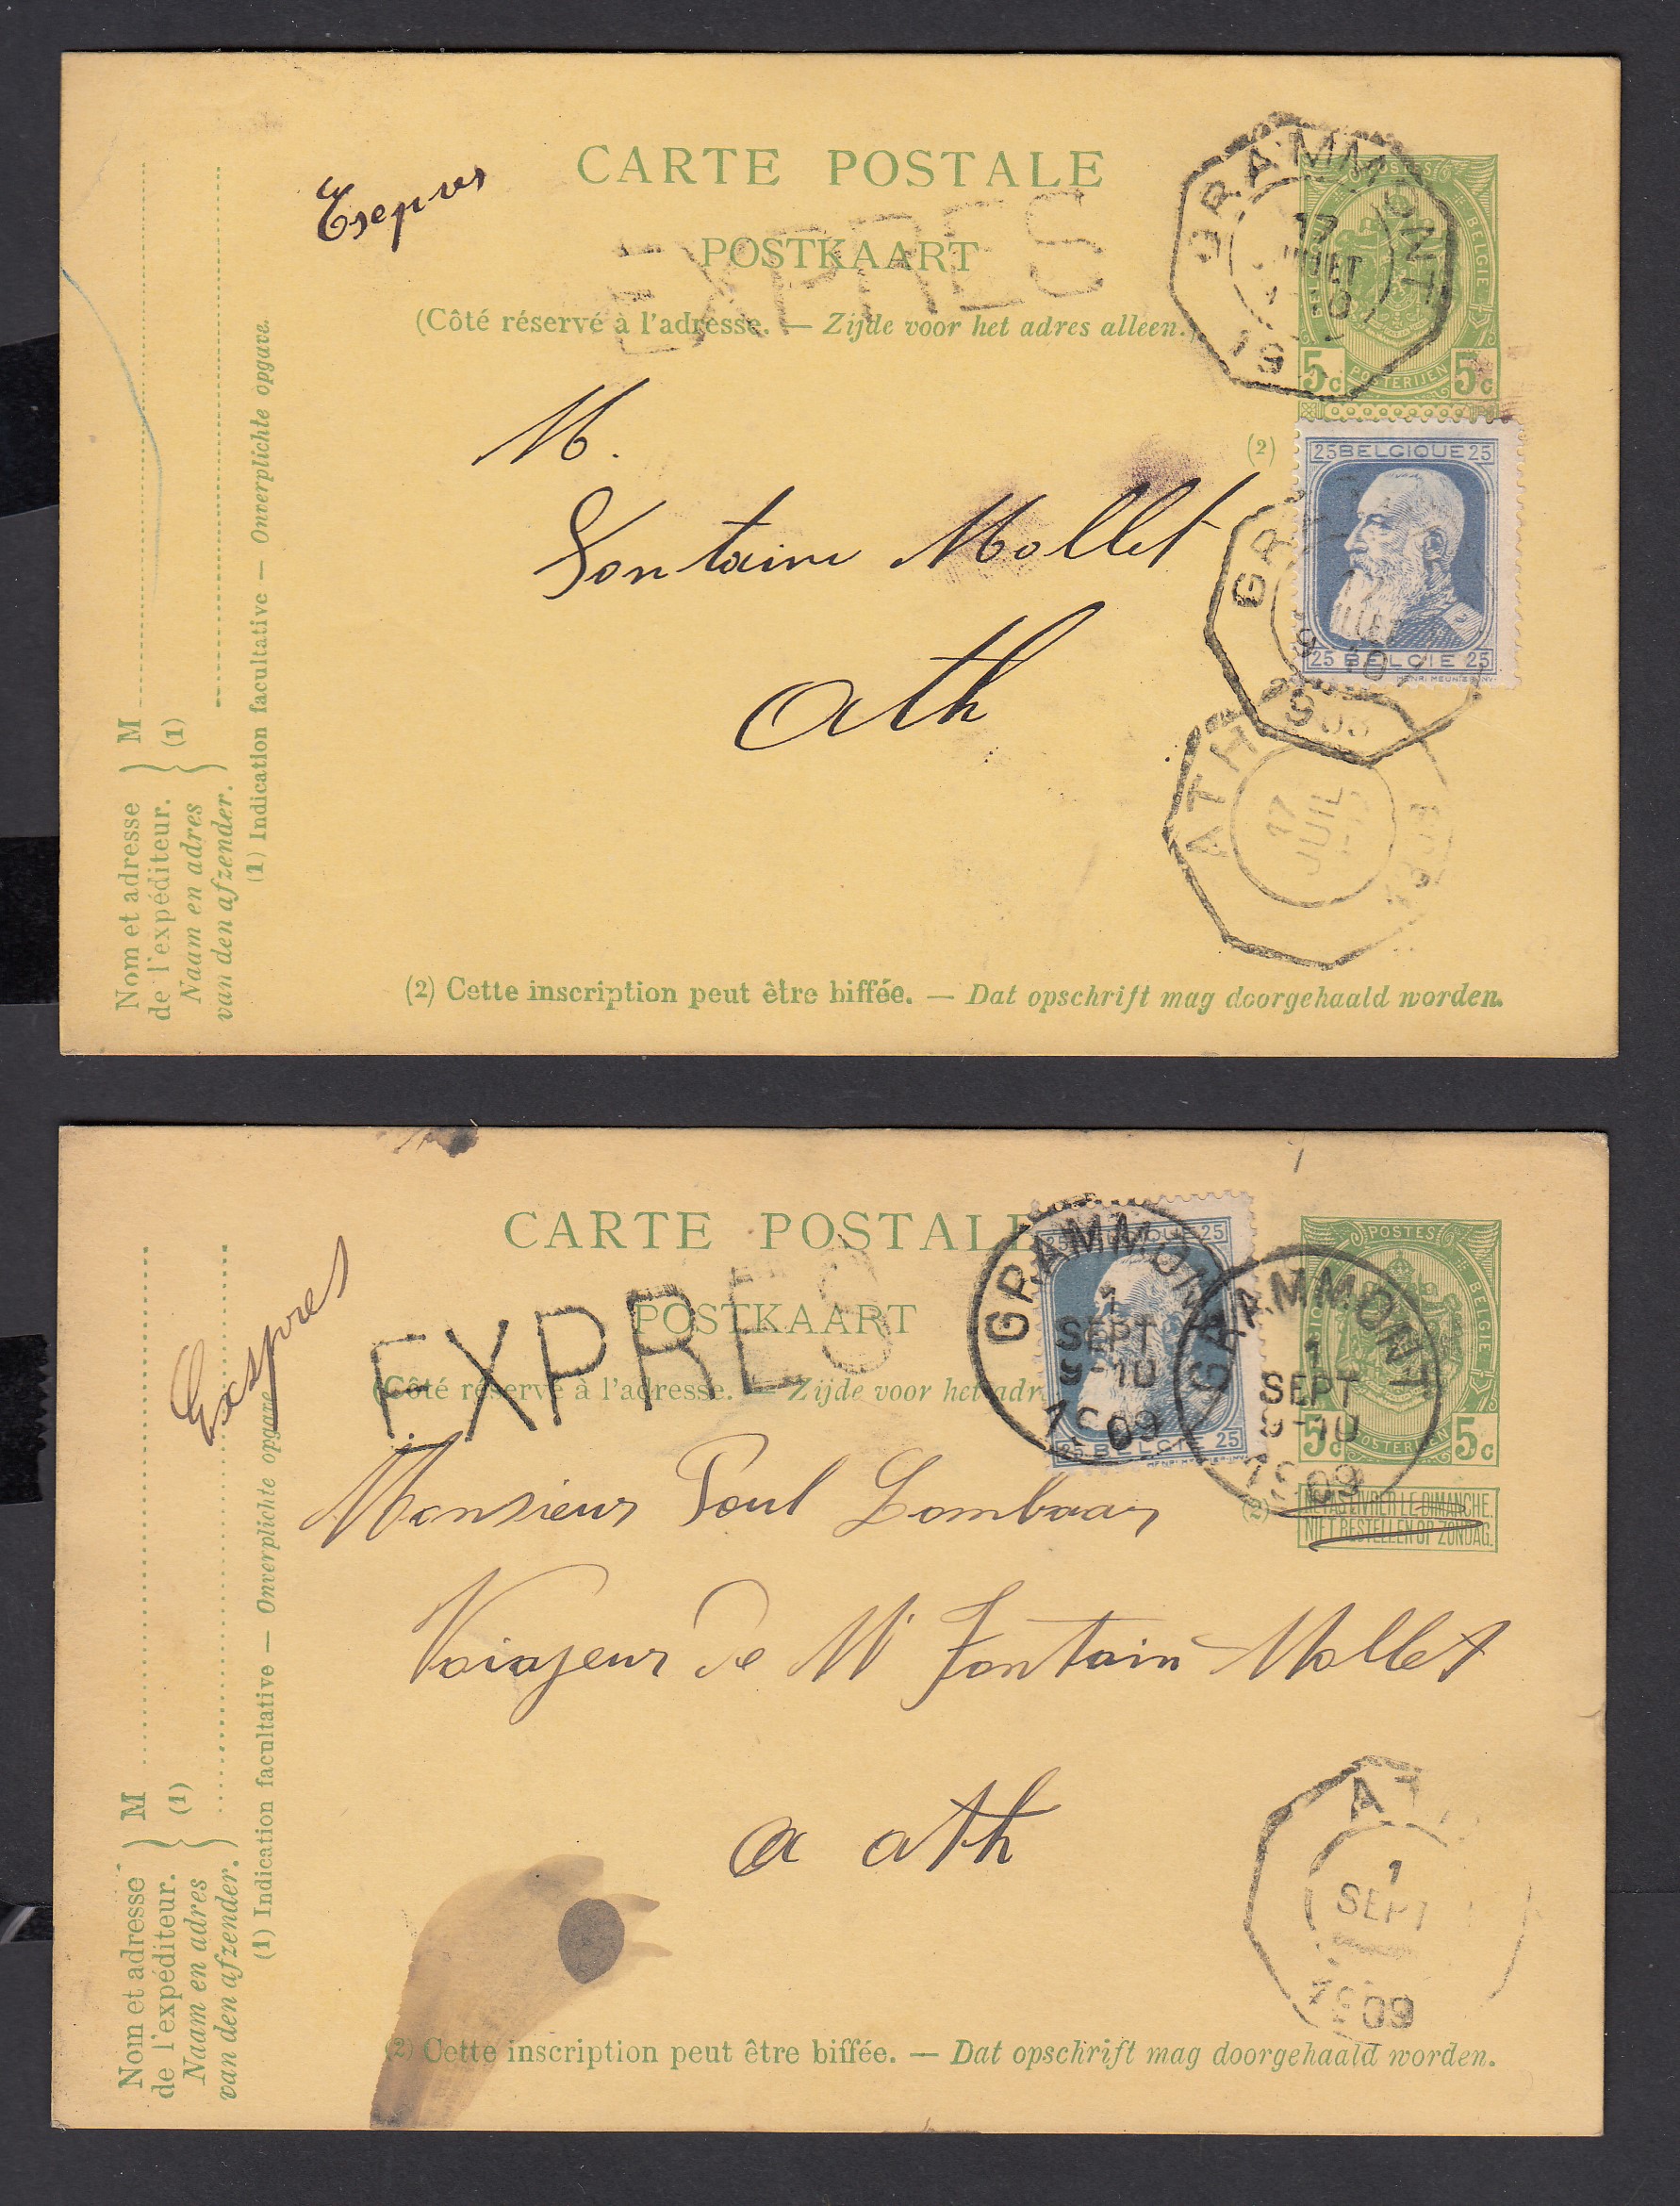 CARTE POSTALE
Exepres
POSTKAART
EXPRES
(Côté réservé à l'adresse. — Zijde voor het adres alleen.)
GRAMMONT
17
JUILLET
19
5c POSTERIJEN 5c
M.
(2)
25 BELGIQUE 25
Fontaine Mollet
25 BELGIE 25
Ath
ATH
17
JUIL
1908
M
(1)
Nom et adresse
de l'expéditeur.
Naam en adres
van den afzender.
(1) Indication facultative — Onverplichte opgave.
(2) Cette inscription peut être biffée. — Dat opschrift mag doorgehaald worden.
CARTE POSTALE
Exspres
POSTKAART
EXPRES
(Côté réservé à l'adresse. — Zijde voor het adr
25 BELGIQUE 25
GRAMMONT
1
SEPT
9-10
1909
25 BELGIE 25
POSTES
BELGIE
GRAMMONT
1
SEPT
9-10
1909
5c POSTERIJEN 5c
Monsieur Poul Lombaar
(2)
NE PAS LIVRER LE DIMANCHE.
NIET BESTELLEN OP ZONDAG.
Voiajeur de Mr Fontain-Mollet
a ath
ATH
1
SEPT
1909
M
(1)
Nom et adresse
de l'expéditeur.
Naam en adres
van den afzender.
(1) Indication facultative — Onverplichte opgave.
(2) Cette inscription peut être biffée. — Dat opschrift mag doorgehaald worden.